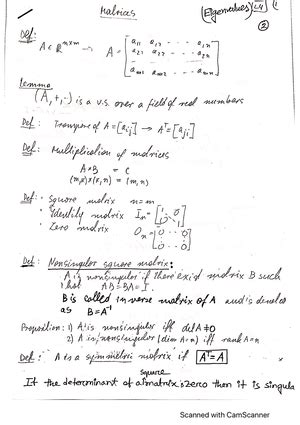 Matrices
(Eigenvalues) L4
②
Def:
A ∈ ℝⁿˣᵐ → A = [a₁₁ a₁₂ ... a₁ₙ
a₂₁ a₂₂ ... a₂ₙ
aₘ₁ aₘ₂ ... aₘₙ]
Lemma
(A, +, ·) is a v.s. over a field of real numbers
Def: Transpose of A = [aᵢⱼ] → Aᵀ = [aⱼᵢ]
Def: Multiplication of matrices
A × B = C
(m,r)×(r,n) = (m,n)
Def: · Square matrix n = m
· Identity matrix Iₙ = [1 0
0 1]
· Zero matrix Oₙ = [0 ... 0
0 ... 0]
Def: Nonsingular square matrix:
A is nonsingular if there exist matrix B such
that AB = BA = I.
B is called inverse matrix of A and is denoted
as B = A⁻¹
Proposition: 1) A is nonsingular iff det A ≠ 0
2) A is nonsingular (dim A = n) iff rank A = n
Def: A is a symmetric matrix if Aᵀ = A
square
If the determinant of a matrix is zero then it is singula
Scanned with CamScanner